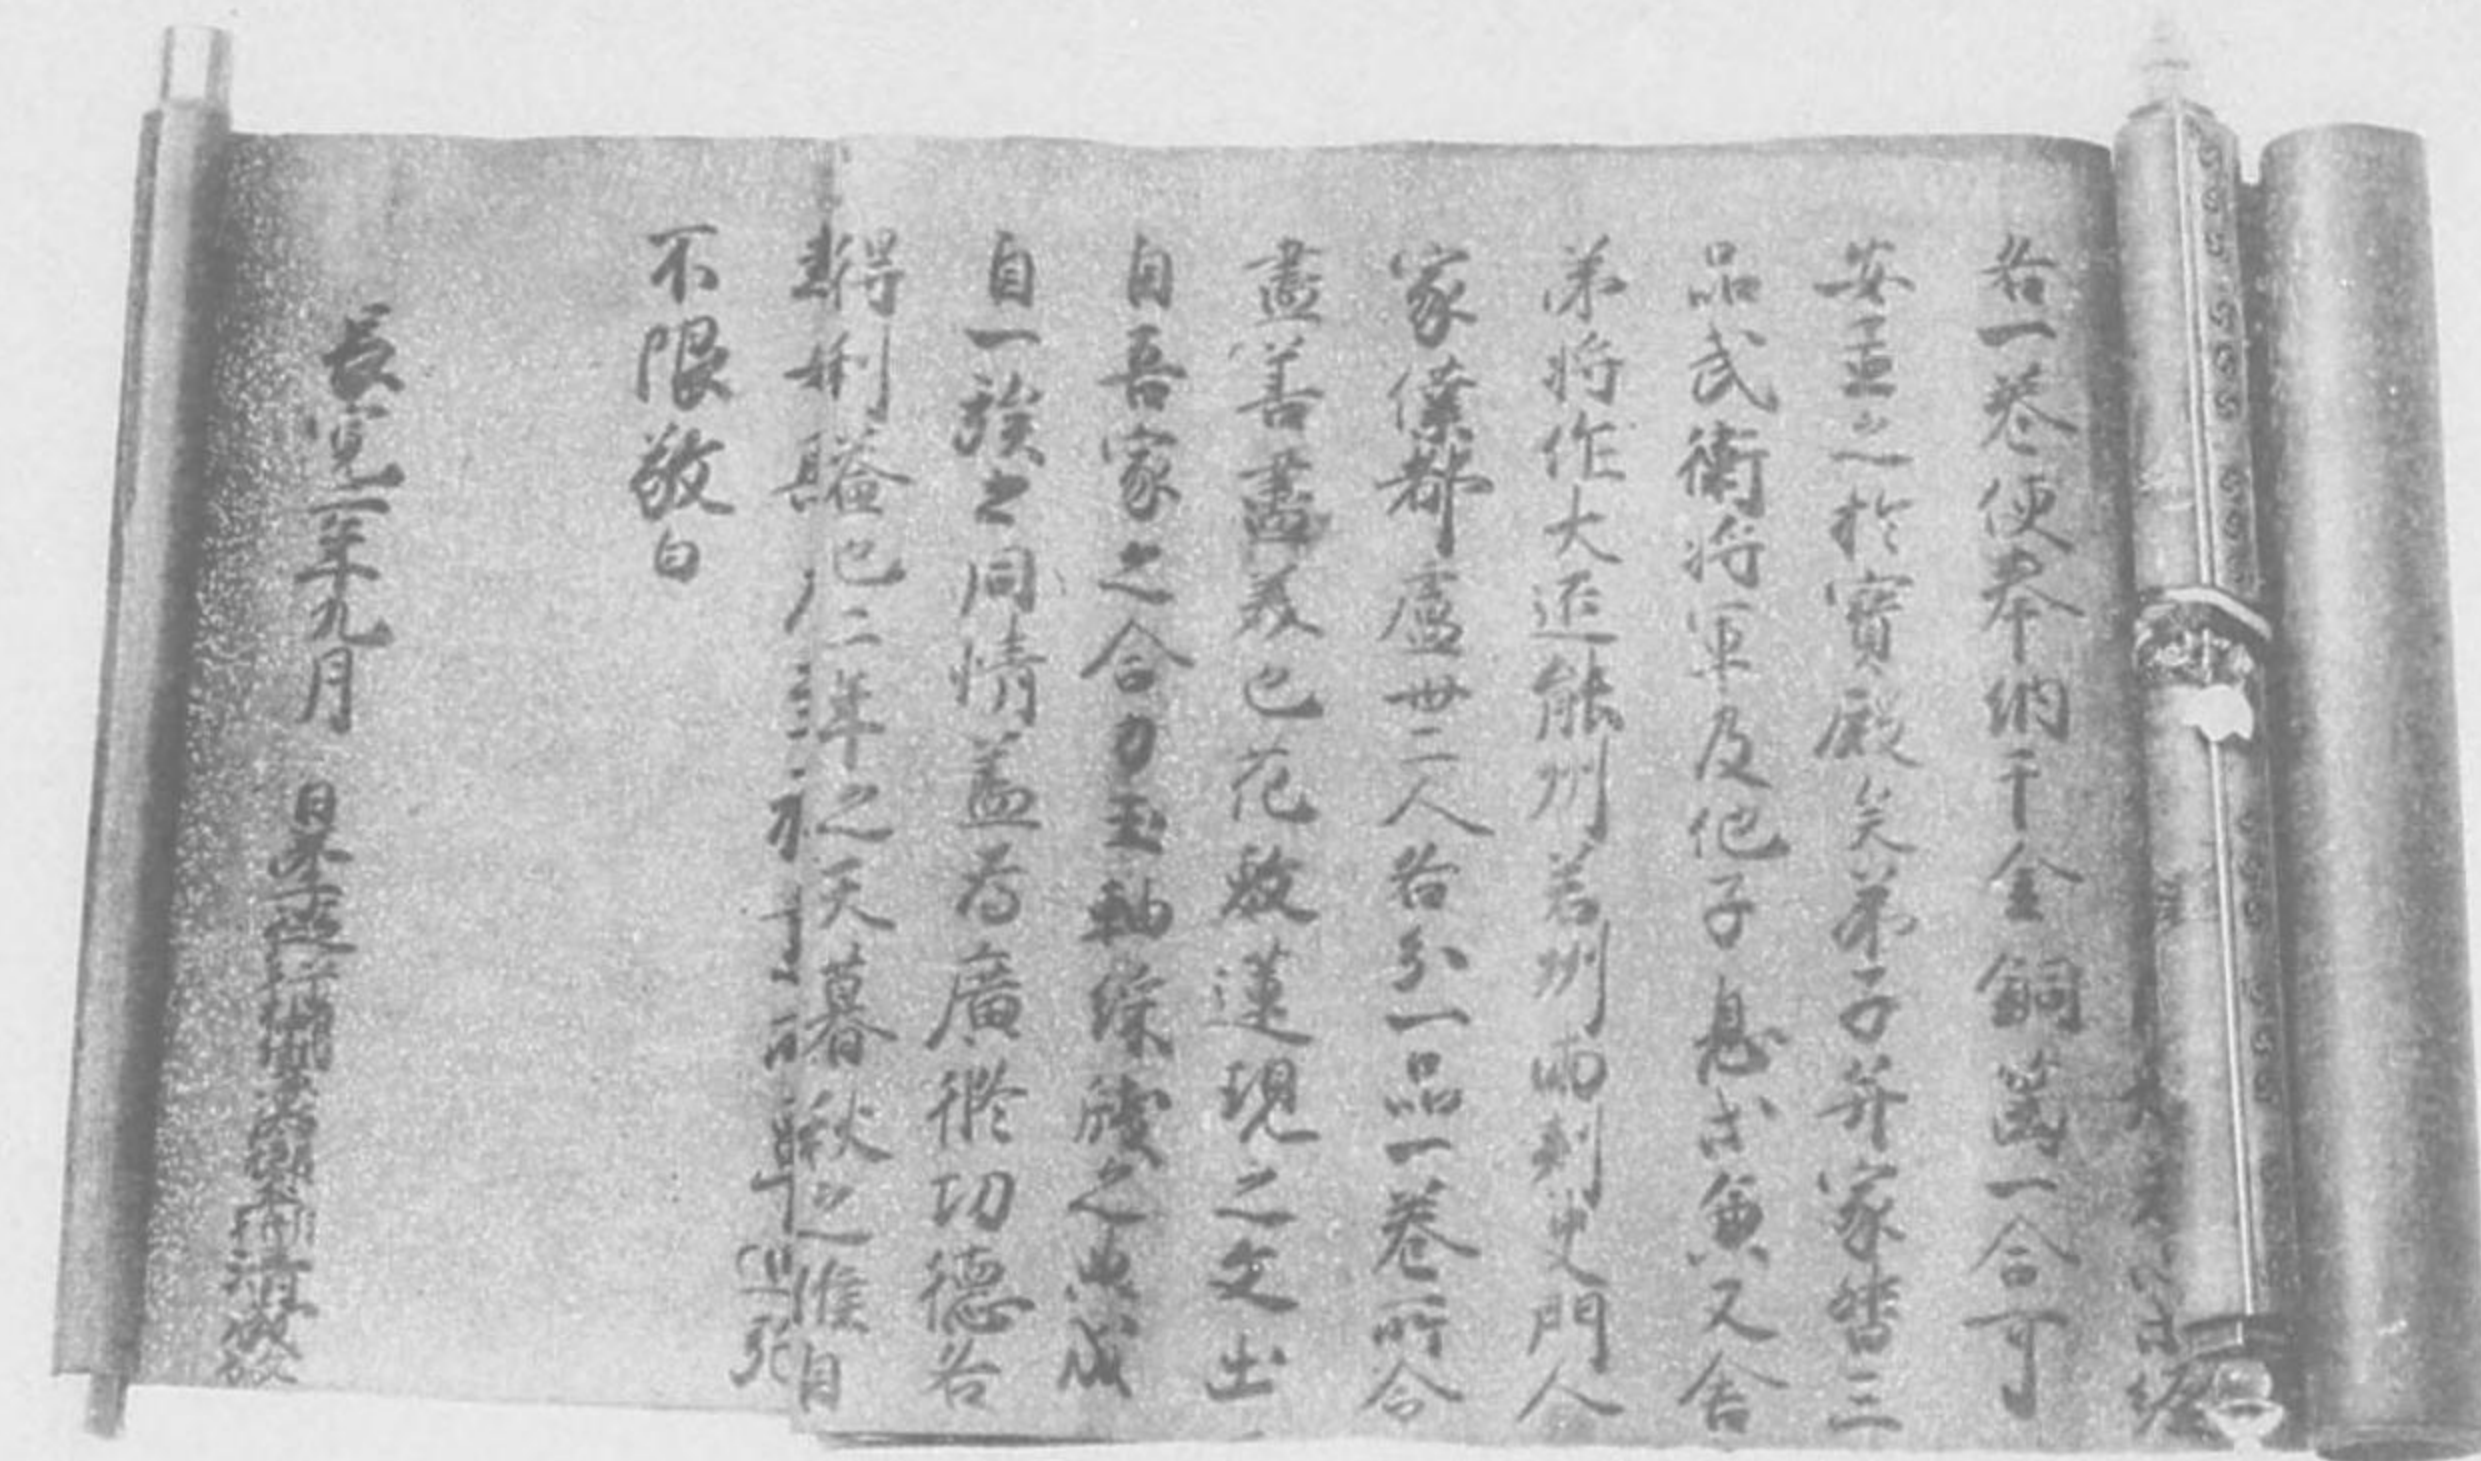 各一卷便奉納于金銅篋一合可
安置之於寶殿矣弟子并家督三
品武衛将軍及他子息等兼又舎
弟将作大匠能州若州両刾史門人
家僕都盧卅二人各分一品一卷所令
盡善盡美也花敷蓮現之文出
自吾家之合力玉軸綵牋之典成
自一族之同情蓋為廣修功德各
得利益也二年之天暮秋之候自
不限敬白
長寛二年九月 日